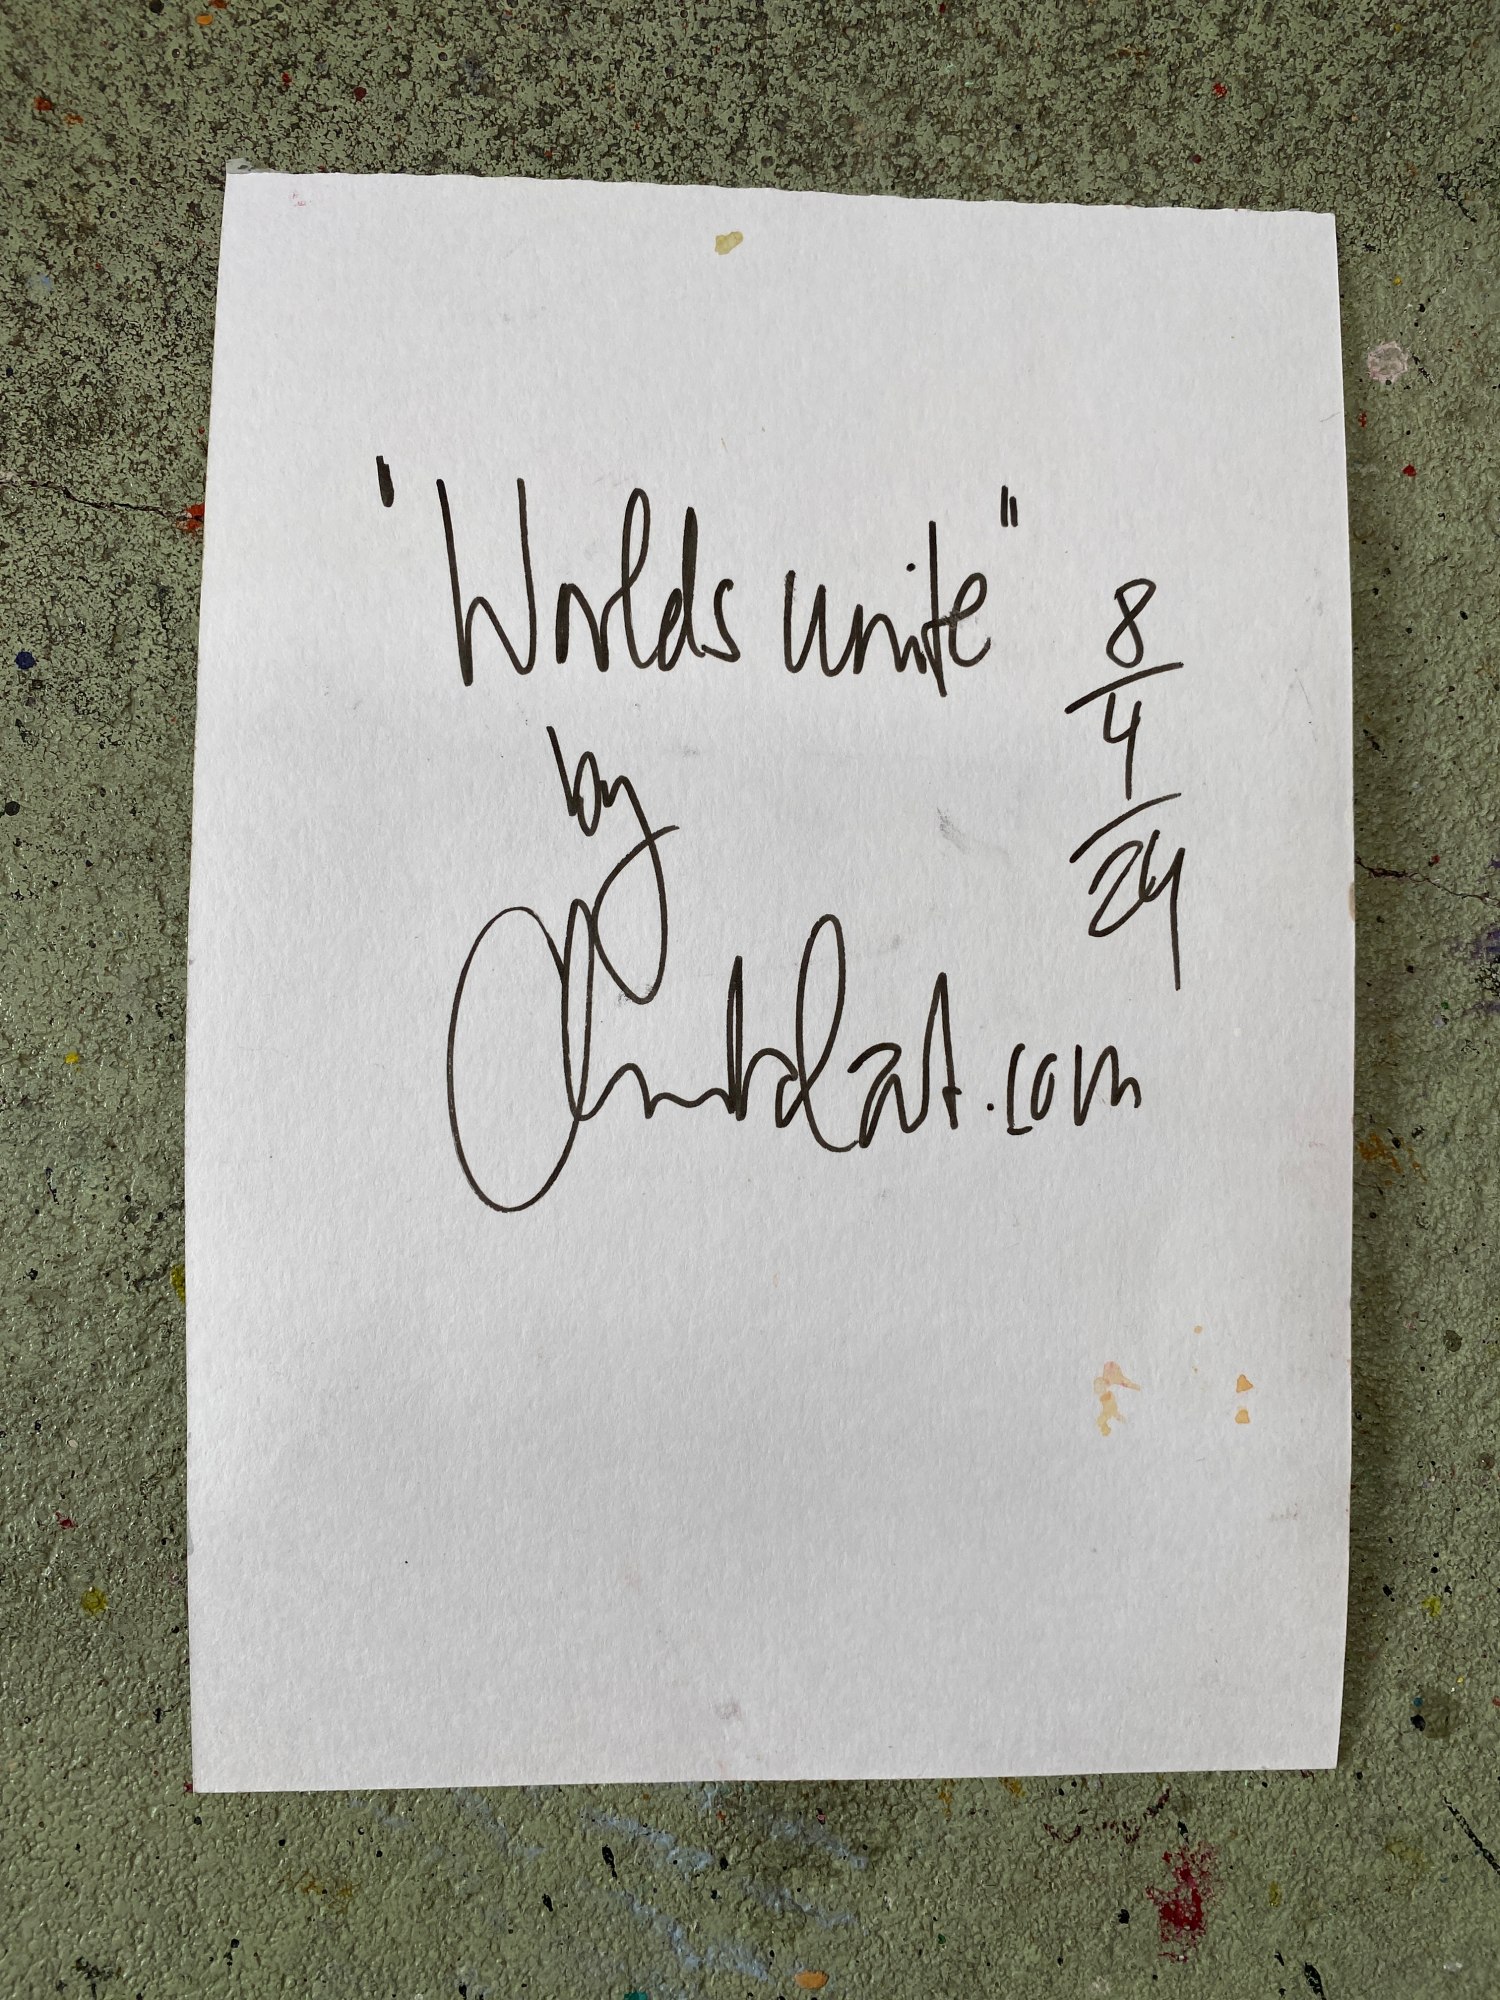 "Worlds unite"
8/4/24
by
.com